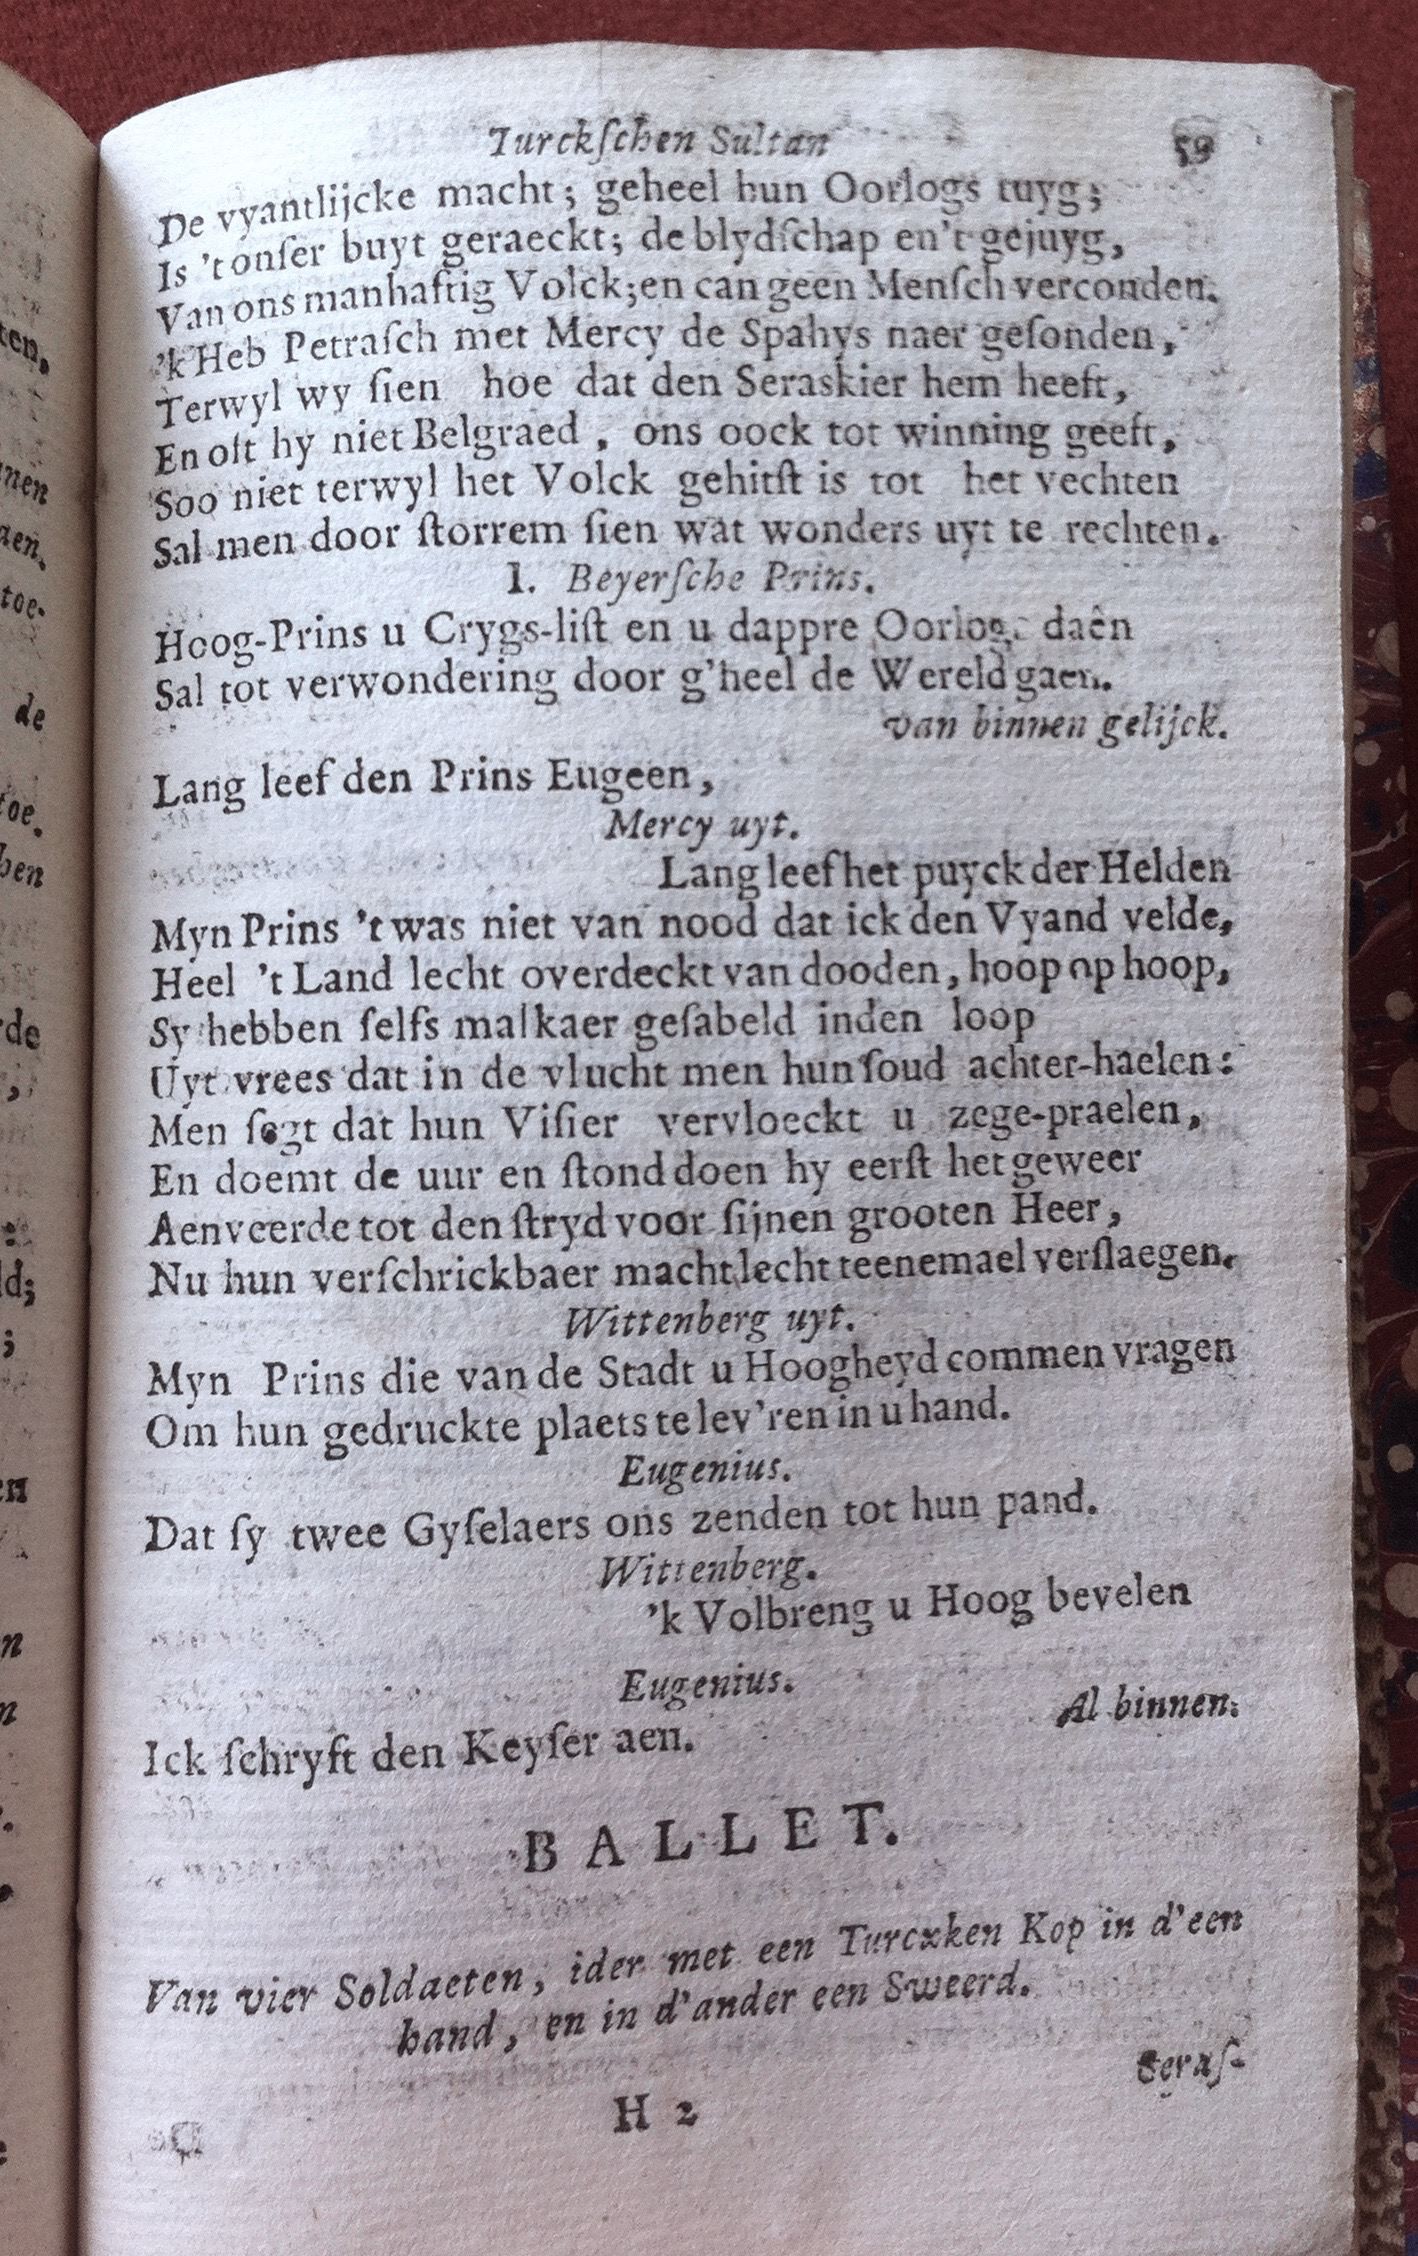 Turckſchen Sultan 59
De vyantlijcke macht; geheel hun Oorlogs tuyg;
Is 't onſer buyt geraeckt; de blydſchap en 't gejuyg,
Van ons manhaftig Volck; en can geen Menſch verconden.
'k Heb Petraſch met Mercy de Spahys naer geſonden,
Terwyl wy ſien hoe dat den Seraskier hem heeft,
En oft hy niet Belgraed, ons oock tot winning geeft,
Soo niet terwyl het Volck gehitſt is tot het vechten
Sal men door ſtorrem ſien wat wonders uyt te rechten.
1. Beyerſche Prins.
Hoog-Prins u Crygs-liſt en u dappre Oorlog. daên
Sal tot verwondering door g'heel de Wereld gaen.
van binnen gelijck.
Lang leef den Prins Eugeen,
Mercy uyt.
Lang leef het puyck der Helden
Myn Prins 't was niet van nood dat ick den Vyand velde,
Heel 't Land lecht overdeckt van dooden, hoop op hoop,
Sy hebben ſelfs malkaer geſabeld inden loop
Uyt vrees dat in de vlucht men hun ſoud achter-haelen:
Men ſegt dat hun Viſier vervloeckt u zege-praelen,
En doemt de uur en ſtond doen hy eerſt het geweer
Aenveerde tot den ſtryd voor ſijnen grooten Heer,
Nu hun verſchrickbaer macht lecht teenemael verſlaegen.
Wittenberg uyt.
Myn Prins die van de Stadt u Hoogheyd commen vragen
Om hun gedruckte plaets te lev'ren in u hand.
Eugenius.
Dat ſy twee Gyſelaers ons zenden tot hun pand.
Wittenberg.
'k Volbreng u Hoog bevelen
Eugenius.
Al binnen.
Ick ſchryft den Keyſer aen.
BALLET.
Van vier Soldaeten, ider met een Turcxken Kop in d'een
hand, en in d'ander een Sweerd.
Seraſ-
H 2
ten,
nnen
aen.
toe-
de
toe.
ben
rde
,
ld;
;
en
n
n